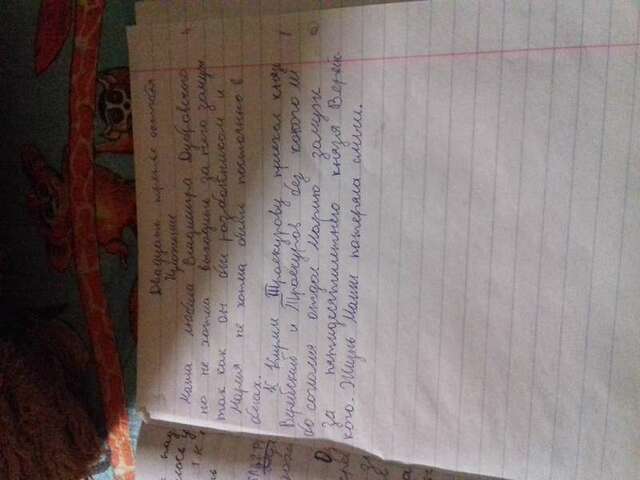 Двадцать третье октября
Изложение
Маша любила Владимира Дубровского
но не хотела выходить за него замуж
так как он был разбойником и
Мария не хотела быть постоянно в
бегах.
К Кириле Троекурову приехал князь
Верейский и Троекуров без какого ли
бо согласия отдал Марию замуж
за пятидесятилетнего князя Верейс-
кого. Жизнь Маши потеряла смысл.